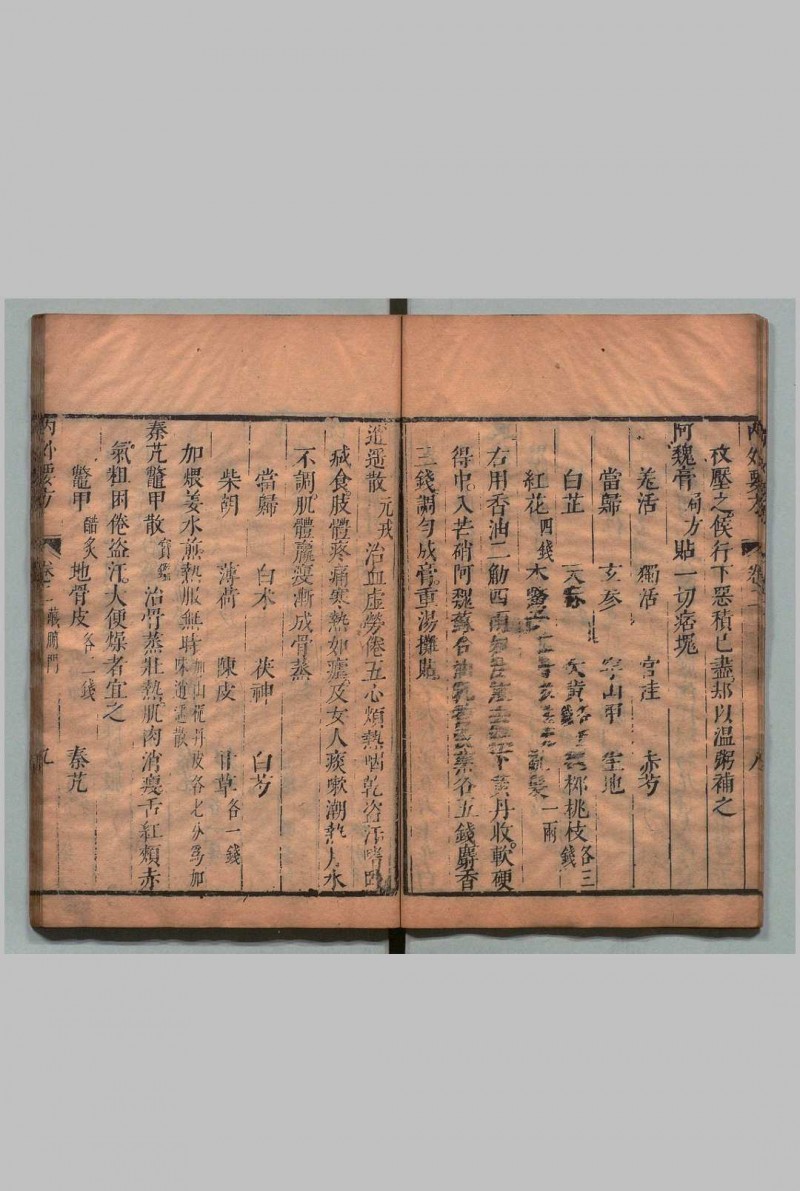 內外要方 卷二 八
夜壓之候行下惡積已盡却以溫粥補之
阿魏膏 局方貼一切痞塊
羗活 獨活 官桂 赤芍
當歸 玄參 穿山甲 生地
白芷 天麻 大黃各 桃枝各三錢
紅花四錢 木鱉 亂髮一兩
右用香油二觔四兩 下黃丹收軟硬
得中入芒硝阿魏蘇合油乳香没藥各五錢麝香
三錢調勻成膏重湯攤貼
逍遥散 元戎 治血虛勞倦五心煩熱咽乾盜汗嗜臥
減食肢體疼痛寒熱如瘧及女人痰嗽潮熱月水
不調肌體羸瘦漸成骨蒸
當歸 白木 茯神 白芍
柴胡 薄荷 陳皮 甘草各一錢
加煨姜水煎熱服無時加山梔丹皮各七分爲加味逍遥散
秦艽鱉甲散 寳鑑 治骨蒸壯熱肌肉消瘦舌紅頰赤
氣粗困倦盜汗大便燥者宜之
鱉甲醋炙 地骨皮各二錢 秦艽
內外要方 卷二 九